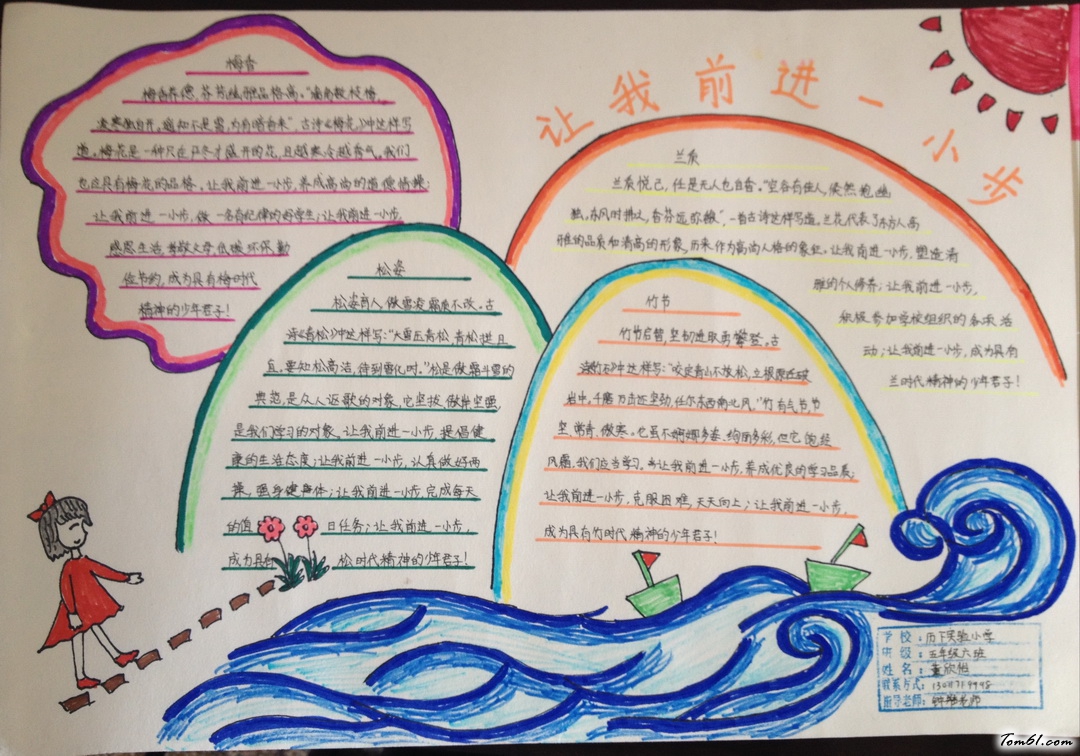 让我前进一小步
梅香
梅香养德，芬芳
凌寒独自开。遥知不是雪，为有暗香来”。古诗《梅花》中这样写
道。梅花是一种只在严冬才盛开的花，且越寒冷越香气。我们
也应具有梅花的品格。让我前进一小步，养成高尚的道德情操；
让我前进一小步，做一名有纪律的好学生；让我前进一小步，
感恩生活，孝敬大学，低碳环保，勤
俭节约，成为具有梅时代
精神的少年君子！
松姿
松姿育人，傲雪凌霜质不改。古
诗《青松》中这样写：“大雪压青松，青松挺且
直，要知松高洁，待到雪化时。”松是傲霜斗雪的
典范，是众人讴歌的对象，它坚拔
是我们学习的对象。让我前进一小步，提倡健
康的生活态度；让我前进一小步，认真做好两
操，强身健体；让我前进一小步，完成每天
的 日任务；让我前进一小步，
成为具有 松时代精神的少年君子！
兰质
兰质悦己，任是无人也自香。“空谷有佳人，倏然抱幽
独。东风时拂之，香芬远弥馥”，一首古诗这样写道。兰花代表了东方人高
雅的品质和清高的形象，历来作为高尚人格的象征。让我前进一小步，塑造清
雅的个人修养；让我前进一小步，
积极参加学校组织的各项活
动；让我前进一小步，成为具有
兰时代精神的少年君子！
竹节
竹节启智，坚韧进取勇攀登。古
诗《竹石》中这样写：“咬定青山不放松，立根原在破
岩中。千磨万击还坚劲，任尔东西南北风。”竹有气节，节
坚常青、傲寒。它虽不婀娜多姿、绚丽多彩，但它饱经
风霜，我们应当学习。让我前进一小步，养成优良的学习品质；
让我前进一小步，克服困难，天天向上；让我前进一小步，
成为具有竹时代精神的少年君子！
学校：历下实验小学
班级：三年级六班
姓名：董欣
联系方式：
指导老师：钟 老师
Tom61.com